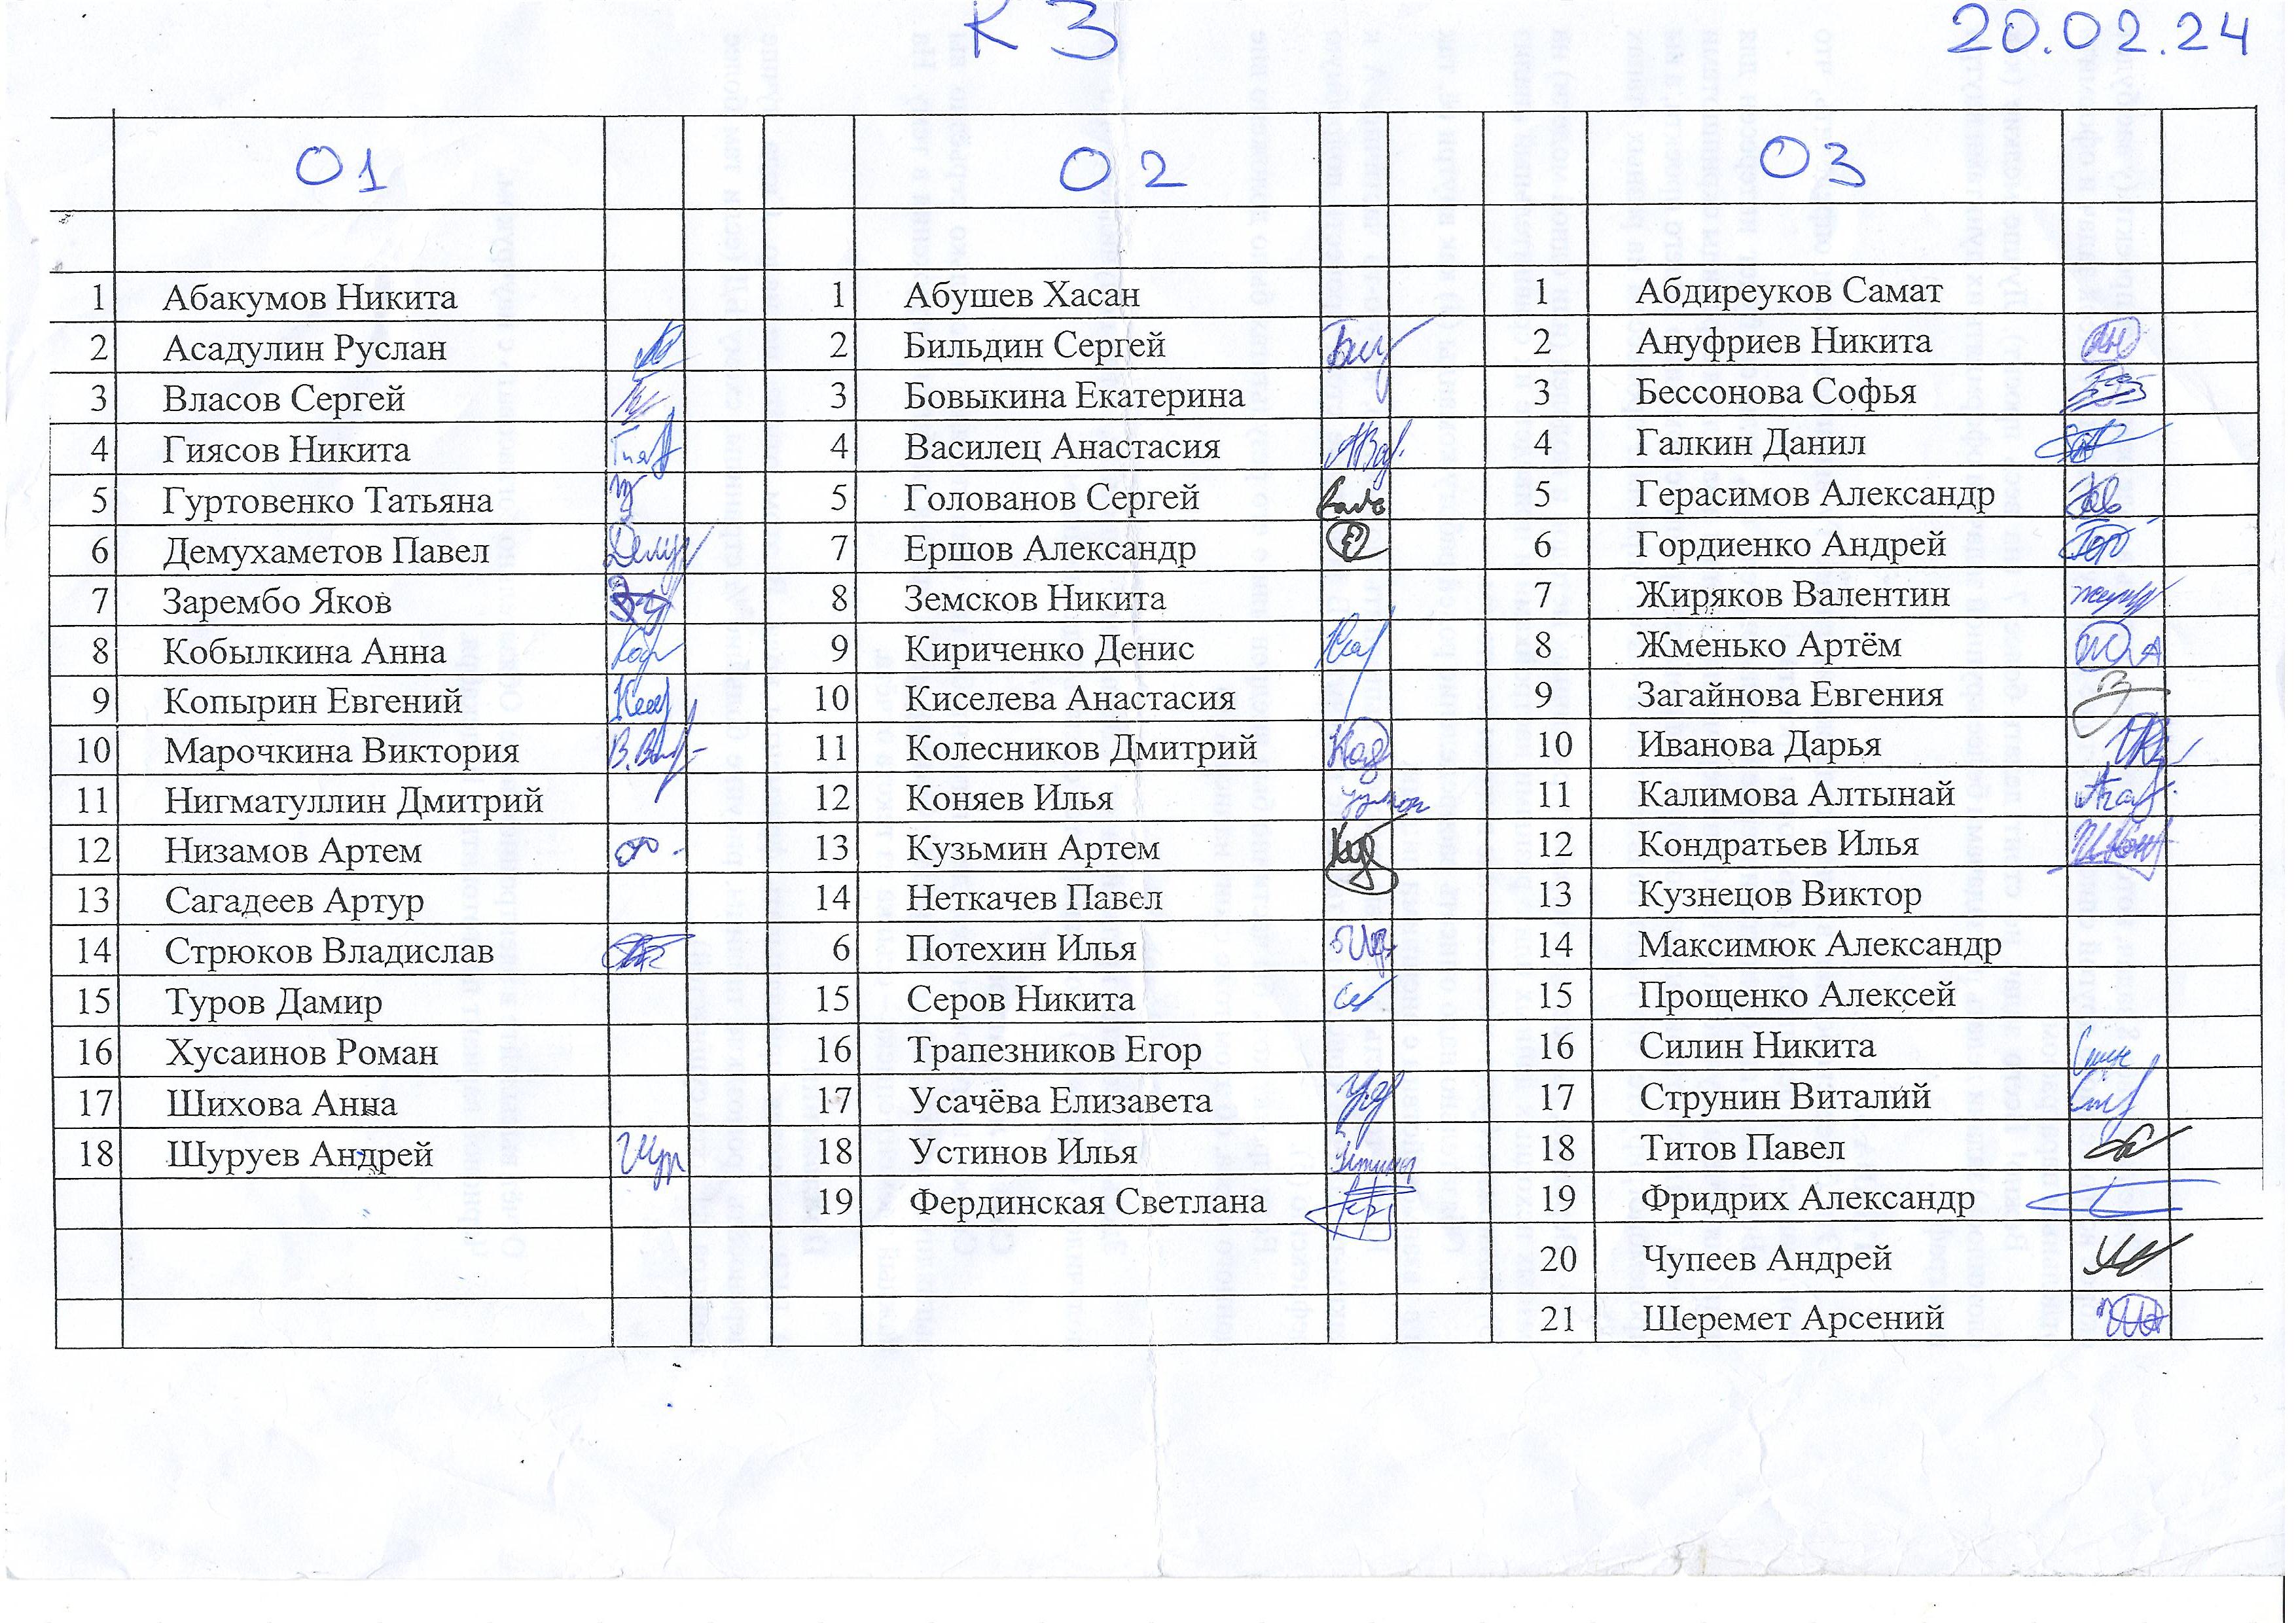 К 3 20.02.24
01 02 03
1 Абакумов Никита 1 Абушев Хасан 1 Абдиреуков Самат
2 Асадулин Руслан 2 Бильдин Сергей 2 Ануфриев Никита
3 Власов Сергей 3 Бовыкина Екатерина 3 Бессонова Софья
4 Гиясов Никита 4 Василец Анастасия 4 Галкин Данил
5 Гуртовенко Татьяна 5 Голованов Сергей 5 Герасимов Александр
6 Демухаметов Павел 7 Ершов Александр 6 Гордиенко Андрей
7 Зарембо Яков 8 Земсков Никита 7 Жиряков Валентин
8 Кобылкина Анна 9 Кириченко Денис 8 Жменько Артём
9 Копырин Евгений 10 Киселева Анастасия 9 Загайнова Евгения
10 Марочкина Виктория 11 Колесников Дмитрий 10 Иванова Дарья
11 Нигматуллин Дмитрий 12 Коняев Илья 11 Калимова Алтынай
12 Низамов Артем 13 Кузьмин Артем 12 Кондратьев Илья
13 Сагадеев Артур 14 Неткачев Павел 13 Кузнецов Виктор
14 Стрюков Владислав 6 Потехин Илья 14 Максимюк Александр
15 Туров Дамир 15 Серов Никита 15 Прощенко Алексей
16 Хусаинов Роман 16 Трапезников Егор 16 Силин Никита
17 Шихова Анна 17 Усачёва Елизавета 17 Струнин Виталий
18 Шуруев Андрей 18 Устинов Илья 18 Титов Павел
19 Фердинская Светлана 19 Фридрих Александр
20 Чупеев Андрей
21 Шеремет Арсений